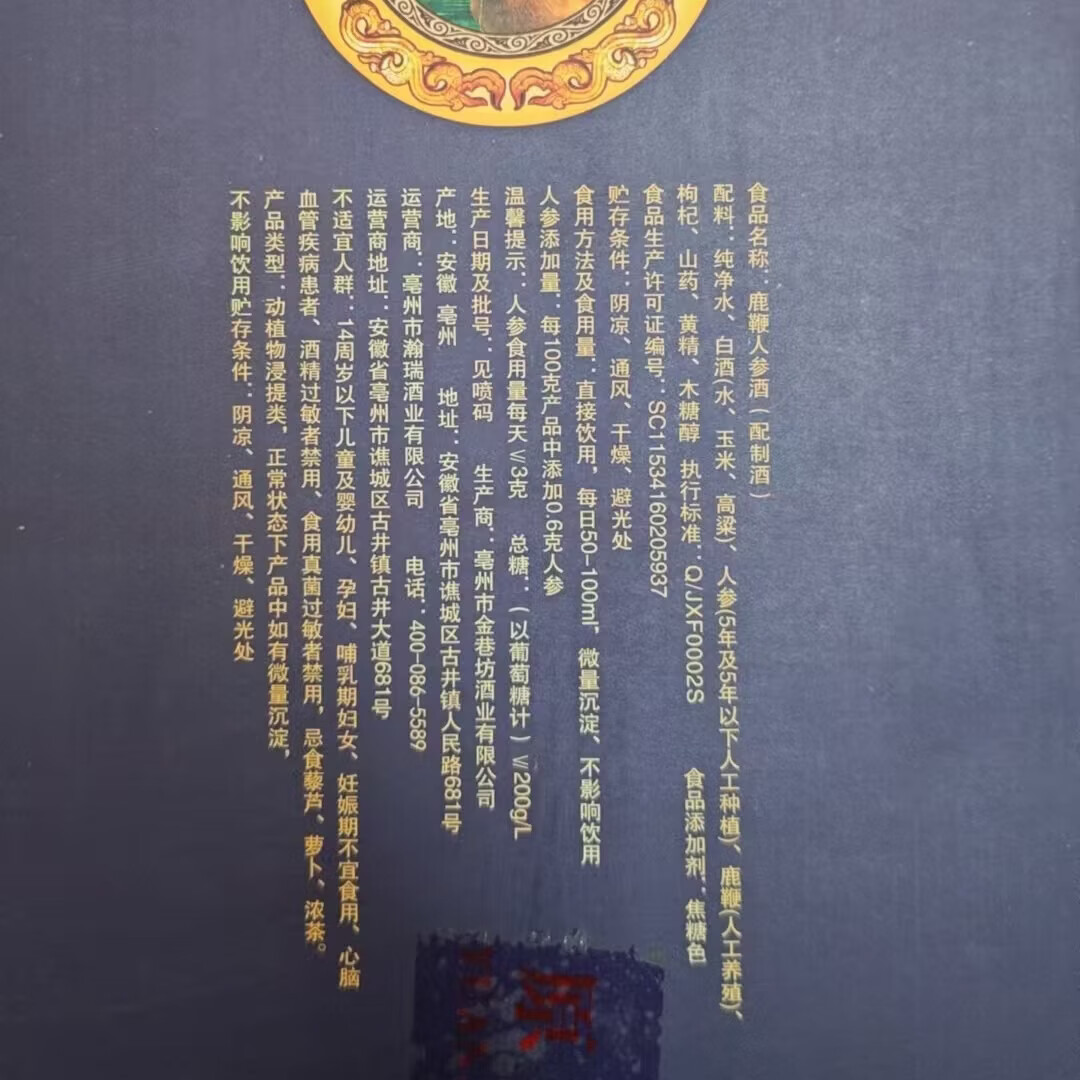 食品名称：鹿鞭人参酒（配制酒）
配料：纯净水、白酒(水、玉米、高粱)、人参(5年及5年以下人工种植)、鹿鞭(人工养殖)、
枸杞、山药、黄精、木糖醇 执行标准：Q/JXF0002S 食品添加剂：焦糖色
食品生产许可证编号：SC11534160205937
贮存条件：阴凉、通风、干燥、避光处
食用方法及食用量：直接饮用，每日50-100ml，微量沉淀、不影响饮用
人参添加量：每100克产品中添加0.6克人参
温馨提示：人参食用量每天≤3克 总糖：（以葡萄糖计）≤200g/L
生产日期及批号：见喷码 生产商：亳州市金巷坊酒业有限公司
产地：安徽 亳州 地址：安徽省亳州市谯城区古井镇人民路681号
运营商：亳州市瀚瑞酒业有限公司 电话：400-086-5589
运营商地址：安徽省亳州市谯城区古井镇古井大道681号
不适宜人群：14周岁以下儿童及婴幼儿、孕妇、哺乳期妇女、妊娠期不宜食用、心脑
血管疾病患者、酒精过敏者禁用、食用真菌过敏者禁用，忌食藜芦、萝卜、浓茶。
产品类型：动植物浸提类，正常状态下产品中如有微量沉淀，
不影响饮用贮存条件：阴凉、通风、干燥、避光处
原